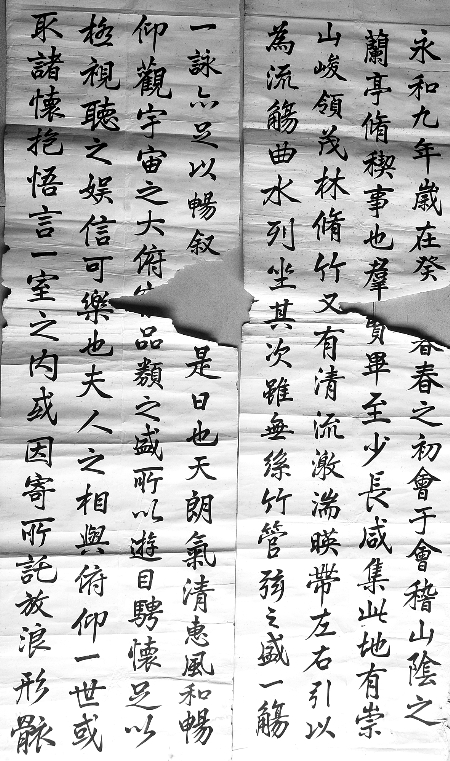 永和九年歲在癸春之初會于會稽山陰之
蘭亭脩稧事也羣賢畢至少長咸集此地有崇
山峻領茂林脩竹又有清流激湍暎帶左右引以
為流觴曲水列坐其次雖無絲竹管弦之盛一觴
一詠亦足以暢叙是日也天朗氣清惠風和暢
仰觀宇宙之大俯品類之盛所以遊目騁懷足以
極視聽之娛信可樂也夫人之相與俯仰一世或
取諸懷抱悟言一室之内或因寄所託放浪形骸